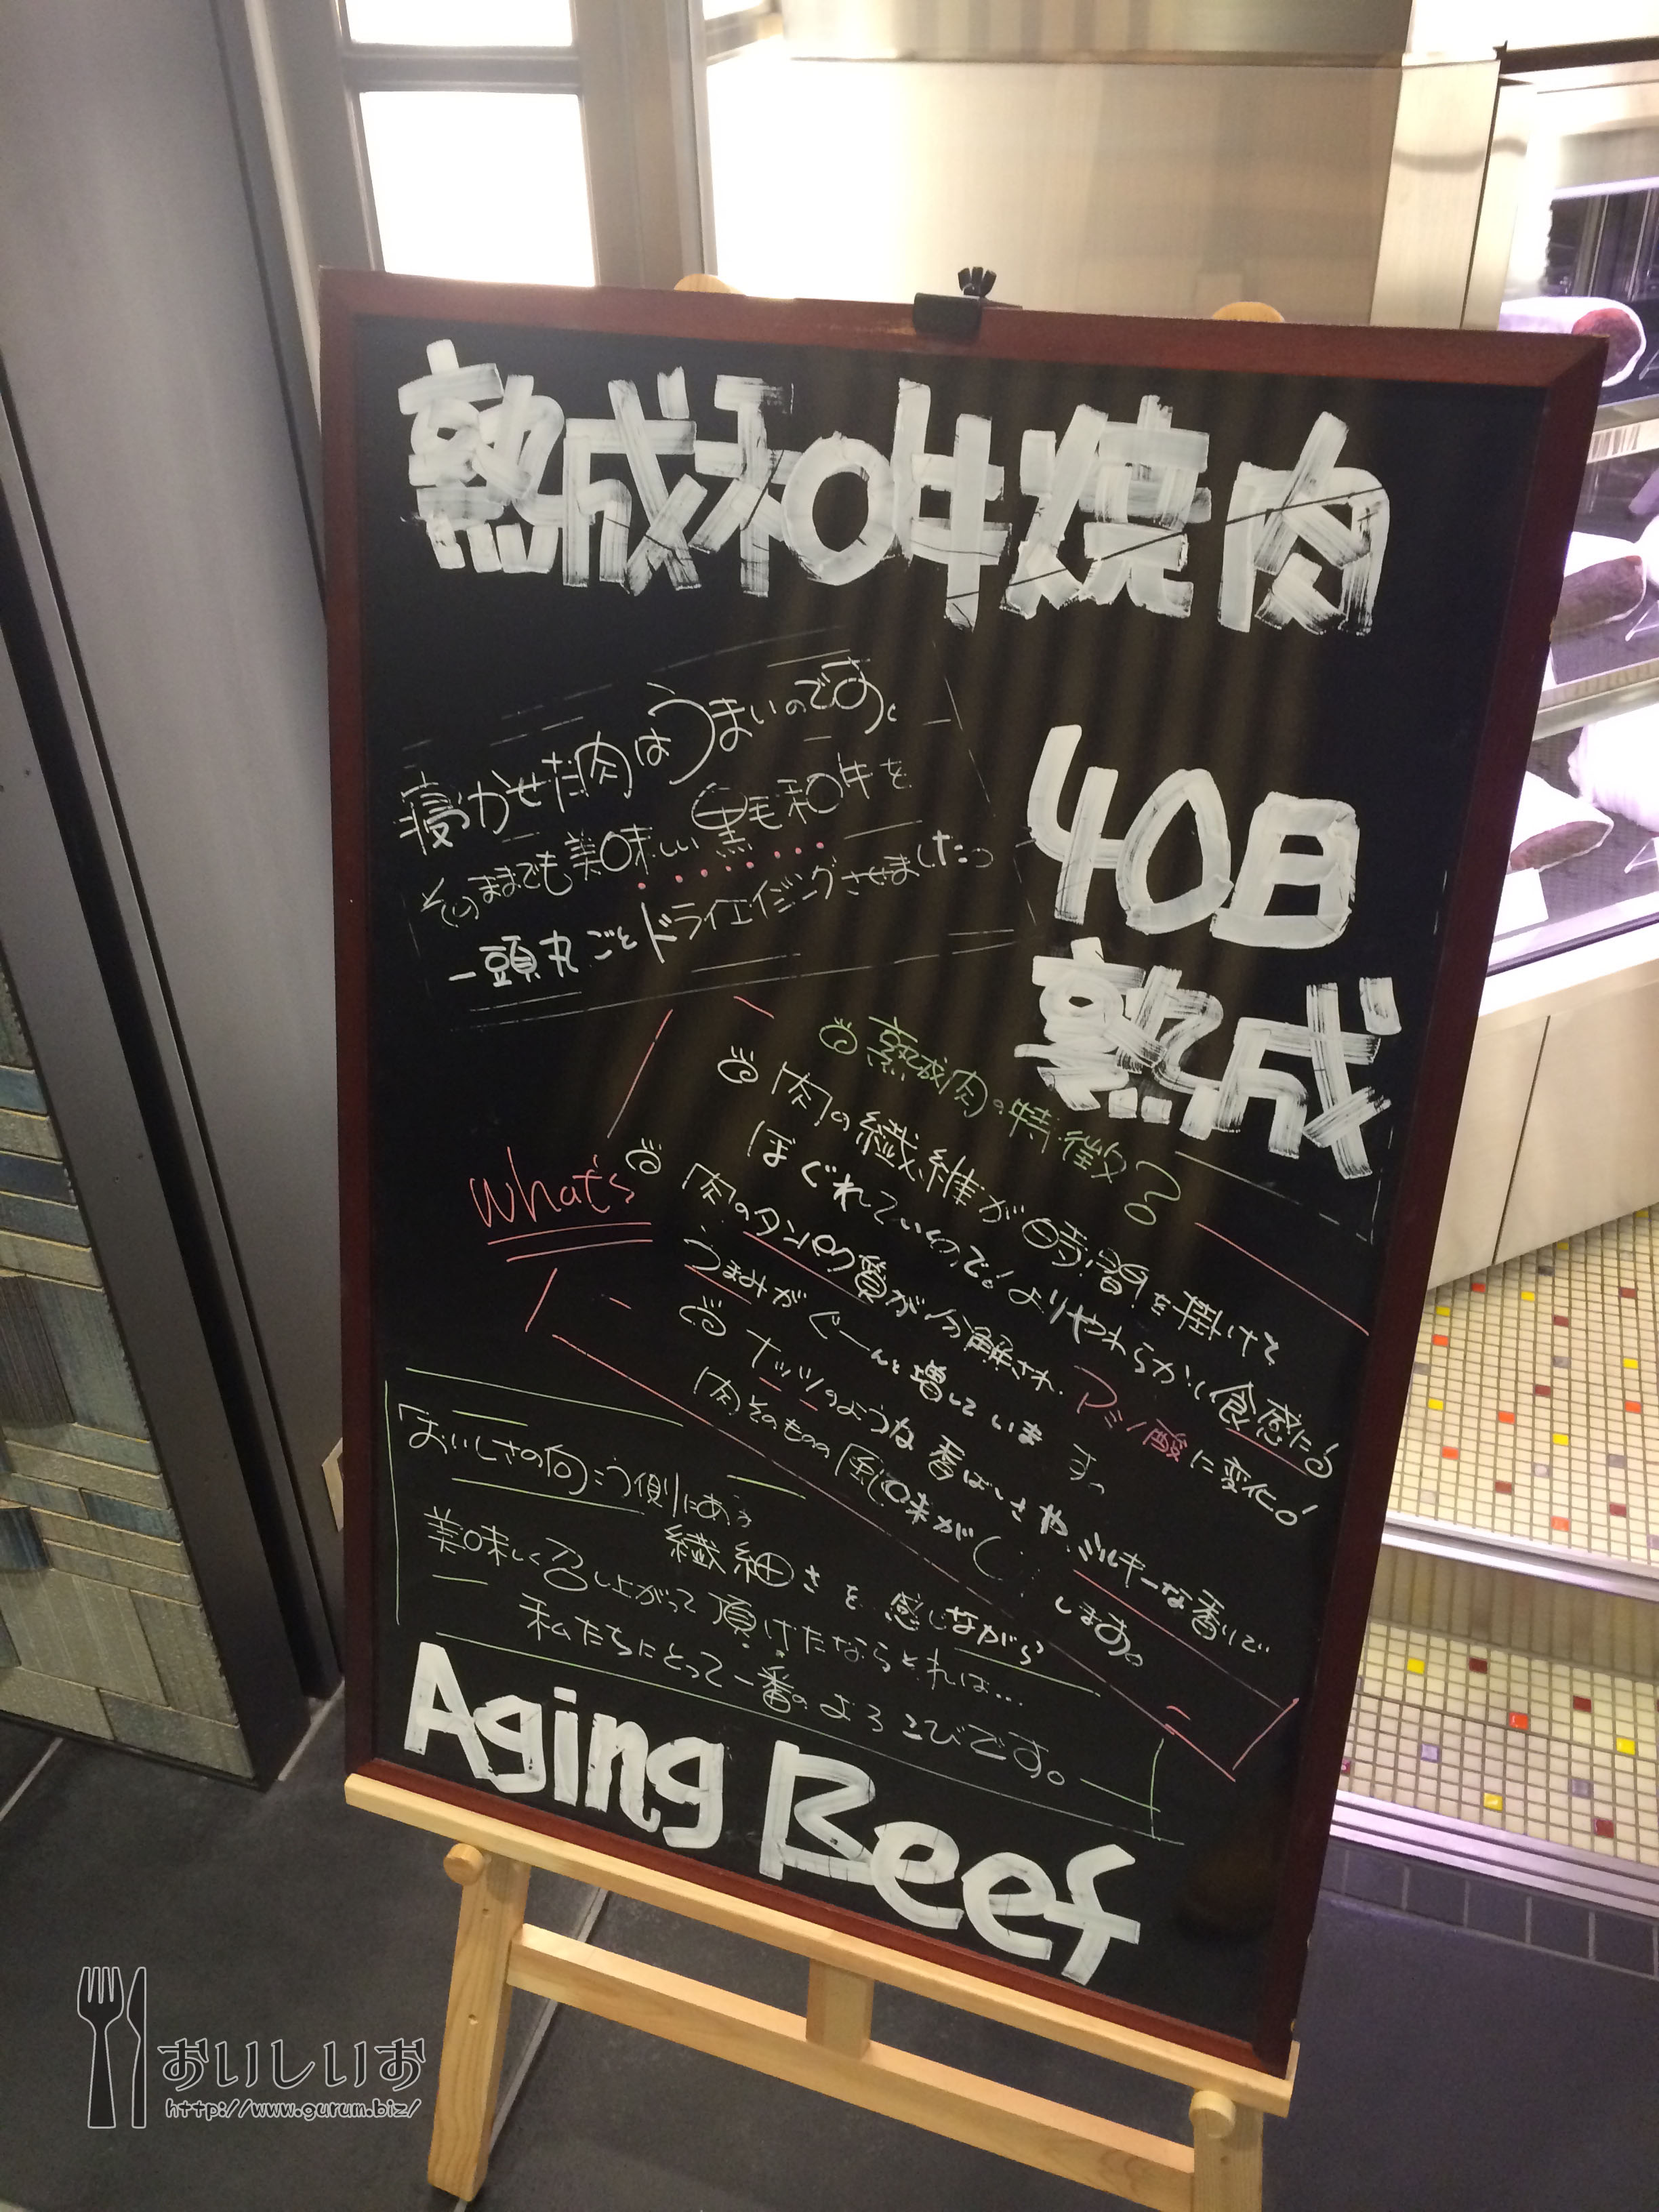 熟成和牛焼肉
寝かせた肉はうまいのです。
そのままでも美味しい黒毛和牛を
一頭丸ごとドライエイジングさせました。
40日
熟成
What's
熟成肉の特徴?
肉の繊維が時間を掛けて
ほぐれていくので!よりやわらかい食感に
肉のタンパク質が分解され、アミノ酸に変化!
うまみがぐーんと増しています。
ナッツのような香ばしさや、ミルキーな香りで
肉そのものの風味が します。
「おいしさの向こう側にある
繊細さを感じながら
美味しく召し上がって頂けたならそれは…
私たちにとって一番のよろこびです。
Aging Beef
おいしいお
http://www.gurum.biz/